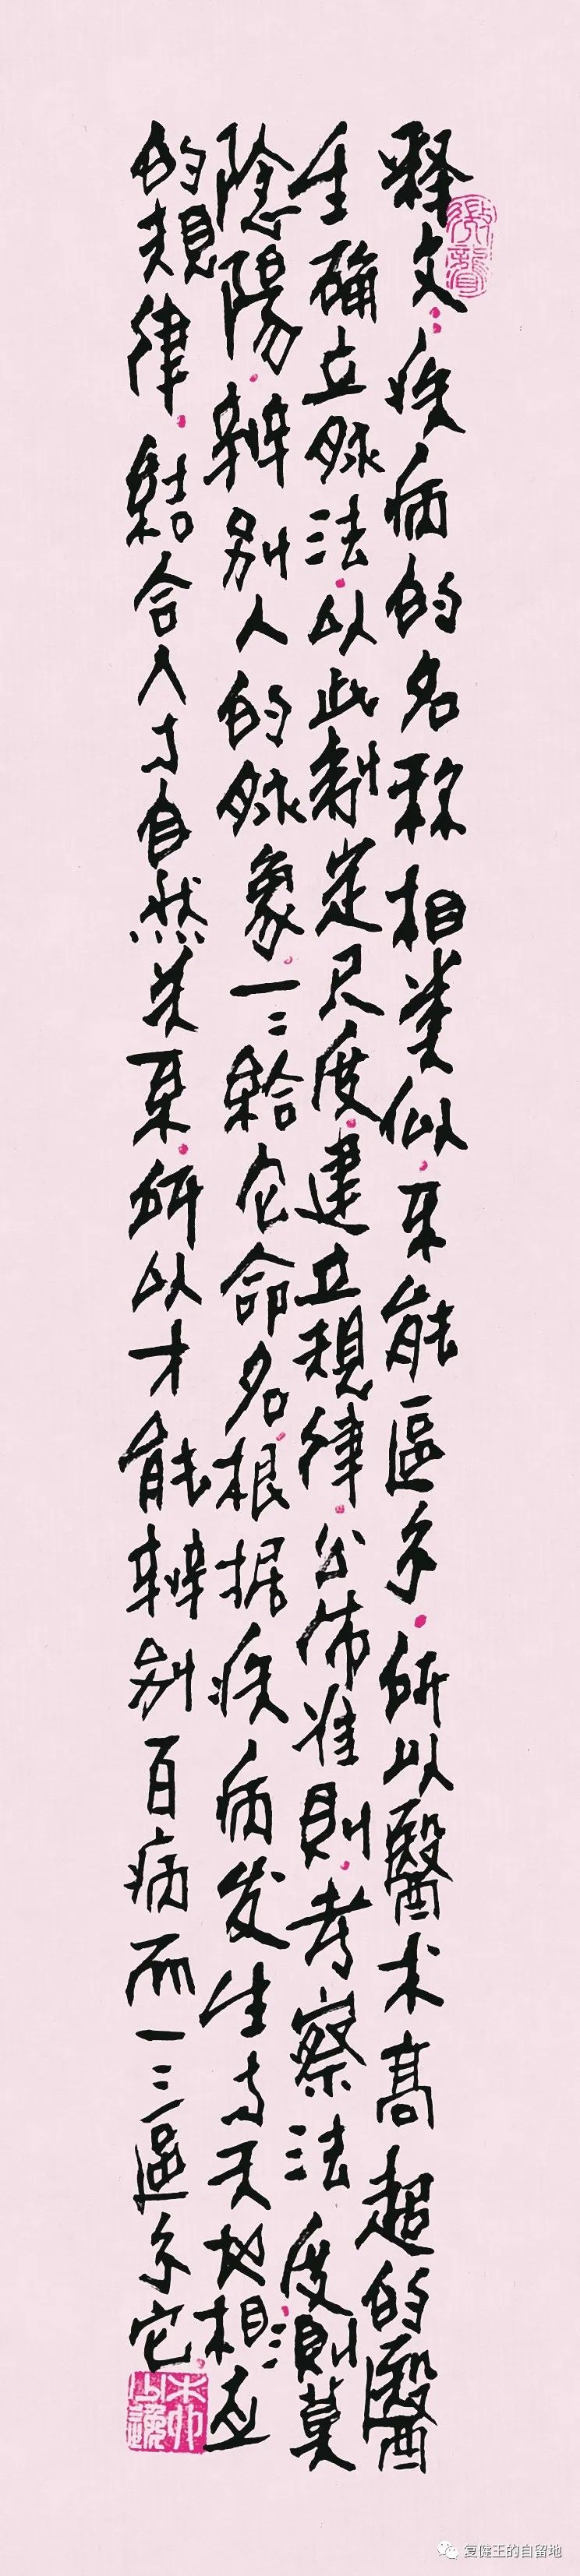 释文：疾病的名称相类似，不能區分。所以醫术高超的醫
生確立脉法，以此制定尺度，建立規律，公佈准則，考察法度，測莫
陰陽，辨别人的脉象，一一給它命名，根据疾病发生与天地相应
的規律，結合人与自然关系，所以才能辨别百病而一一區分它。
复健王的自留地